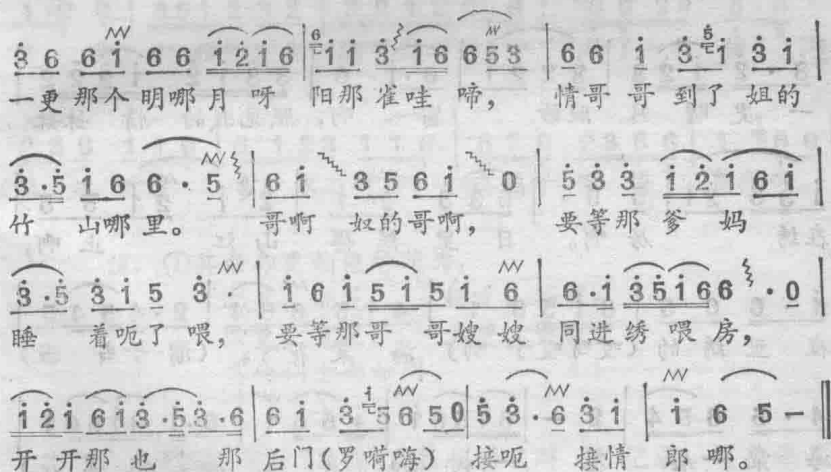 3̇ 6 6 i̇ 6 6 i̇ 2̇ i̇ 6 | 6 i̇ i̇ 3̇ i̇ 6 6 5 3 | 6 6 i̇ 3̇ 5̇ i̇ 3̇ i̇
一更 那个 明哪 月 呀 阳那 雀哇 啼, 情哥 哥 到了 姐的
3̇ · 5̇ i̇ 6 6 · 5 | 6 i̇ 3 5 6 i̇ 0 | 5̇ 3̇ 3̇ i̇ 2̇ i̇ 6 i̇
竹 山哪 里。 哥啊 奴的哥啊, 要等那 爹 妈
3̇ · 5̇ 3̇ i̇ 5 3̇ · | i̇ 6 i̇ 5 i̇ 5 i̇ 6 | 6 · i̇ 3̇ 5̇ i̇ 6 6 · 0 |
睡 着呃了 喂, 要等那哥 哥嫂 嫂 同进绣 喂房,
i̇ 2̇ i̇ 6 i̇ 3̇ · 5̇ 3̇ · 6 | 6 i̇ 3̇ i̇ 5 6 5 0 | 5̇ 3̇ · 6 3̇ i̇ | i̇ 6 5 – ‖
开 开那 也 那 后门(罗嗬嗨) 接呃 接情 郎 哪.